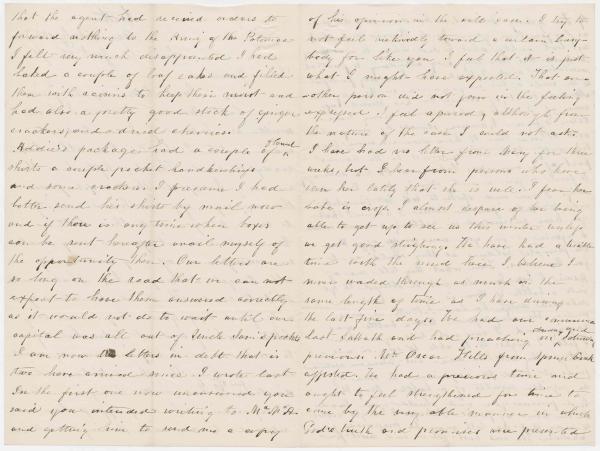 that the agent had received orders to
forward nothing to the Army of the Potomac
I felt very much disappointed I had
baked a couple of loaf cakes and filled
them with raisins to keep them moist and
had also a pretty good stock of ginger
crackers and dried cherries.
Addie's package had a couple of flannel
shirts a couple pocket handkerchiefs
and some crackers I presume I had
better send his shirts by mail now
and if there is any time when boxes
can be sent hereafter avail myself of
the opportunity then. Our letters are
so long on the road that we can not
expect to have them answered correctly
as it would not do to wait until our
capital was all out of Uncle Sam's pockets
I am now letters in debt that is
two have arrived since I wrote last
In the first one now unanswered you
said you intended writing to Mr
and getting him to send me a copy
of his opinion in the case. I try to
not feel unkindly toward a certain busy-
body for like you I feel that it is just
what I might have expected. That an-
other person did not join in the feeling
expressed I feel assured, although from
the nature of the case I could not ask.
I have had no letter from Mary for three
weeks, but I hear from persons who have
seen her lately that she is well. I fear her
babe is cross, I almost despair of her being
able to get up to see us this winter unless
we get good sleighing. We have had a terrible
time with the mud here I believe I
never waded through as much in the
same length of time as I have during
the last five days. We had our communion
last Sabbath and had preaching during
previous. Mr. Oscar Hills from Spruce Creek
assisted. We had a precious time and
ought to feel strengthened for time to
come by the very able manner in which
God's truth and promises were presented